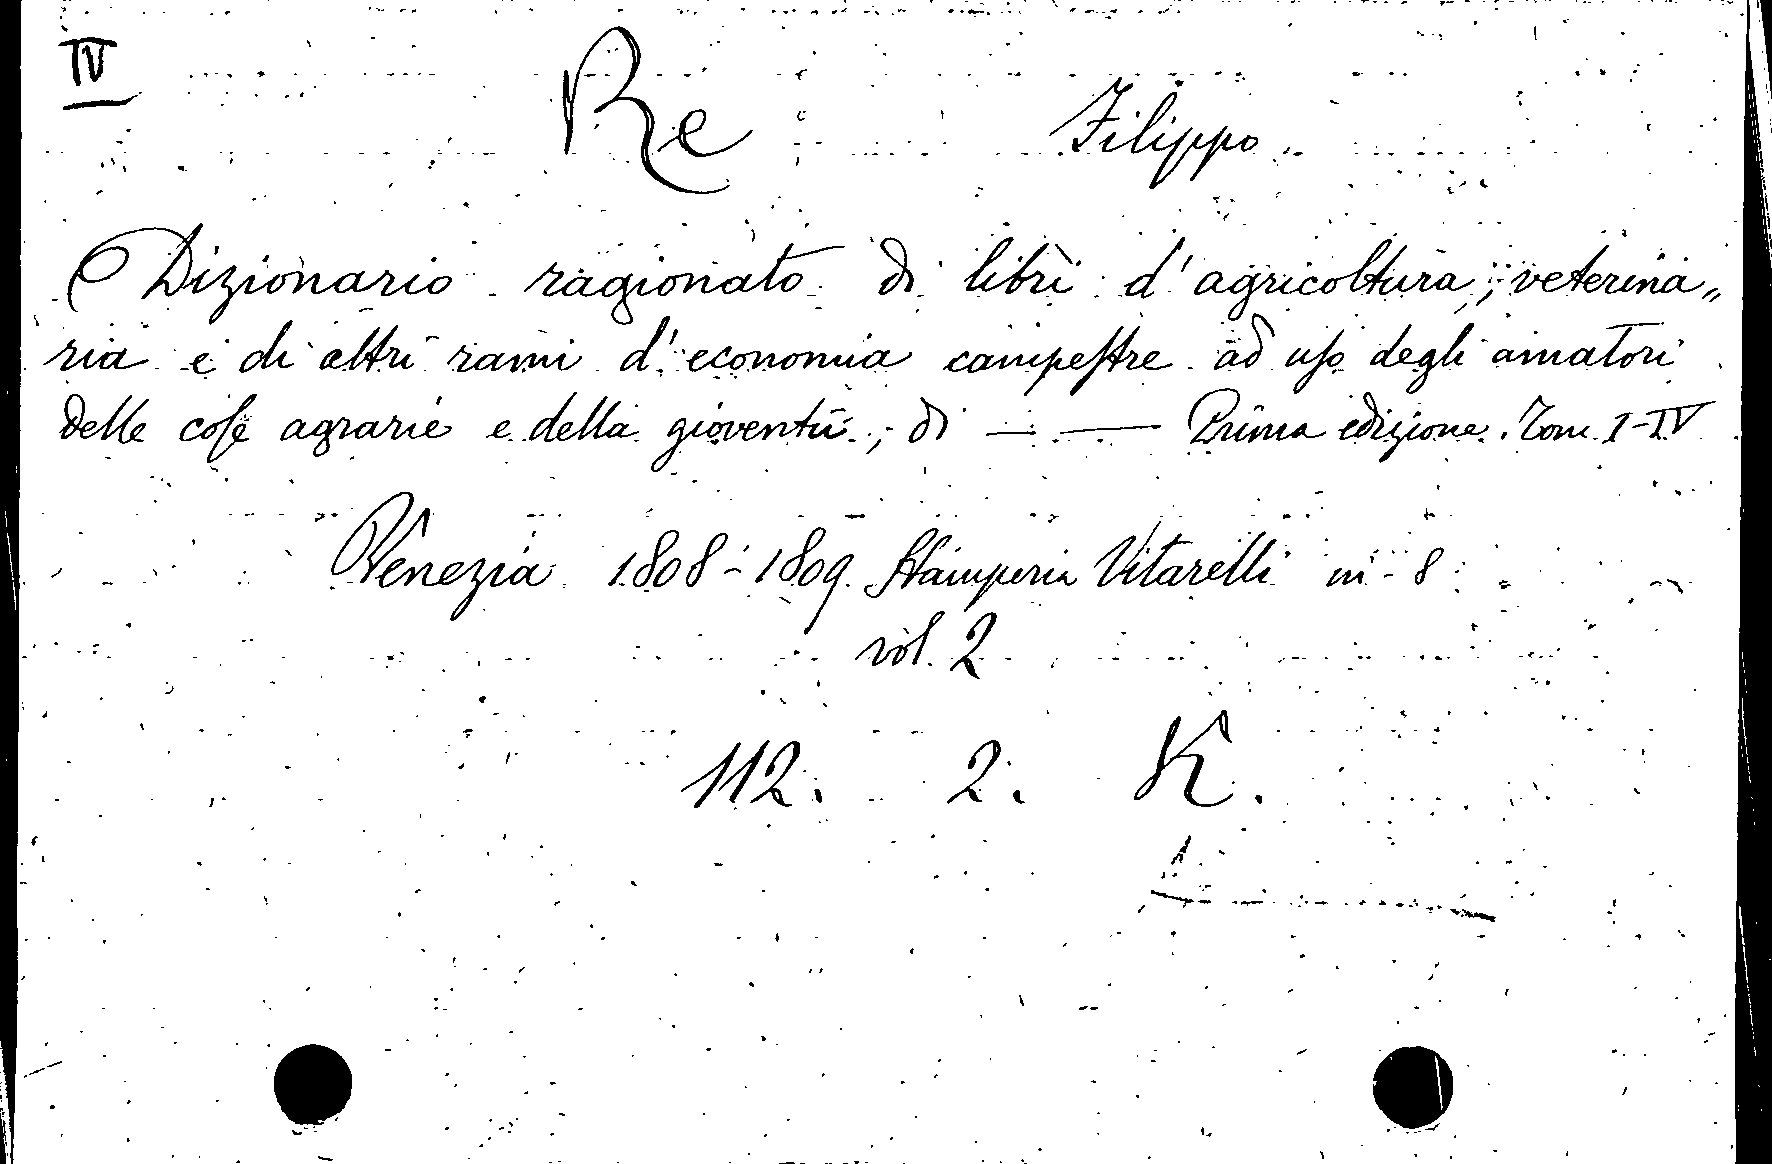 IV
Re Filippo
Dizionario ragionato di libri d'agricoltura, veterina„
ria e di altri rami d'economia campeſtre ad uſo degli amatori
delle coſe agrarie e della gioventù, di — — Prima edizione. Tom. I-IV
Venezia 1808-1809. Stamperia Vitarelli in-8
vol. 2
112. 2. K.